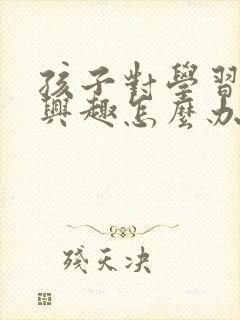 孩子對學習
興趣怎麼办
殘天决